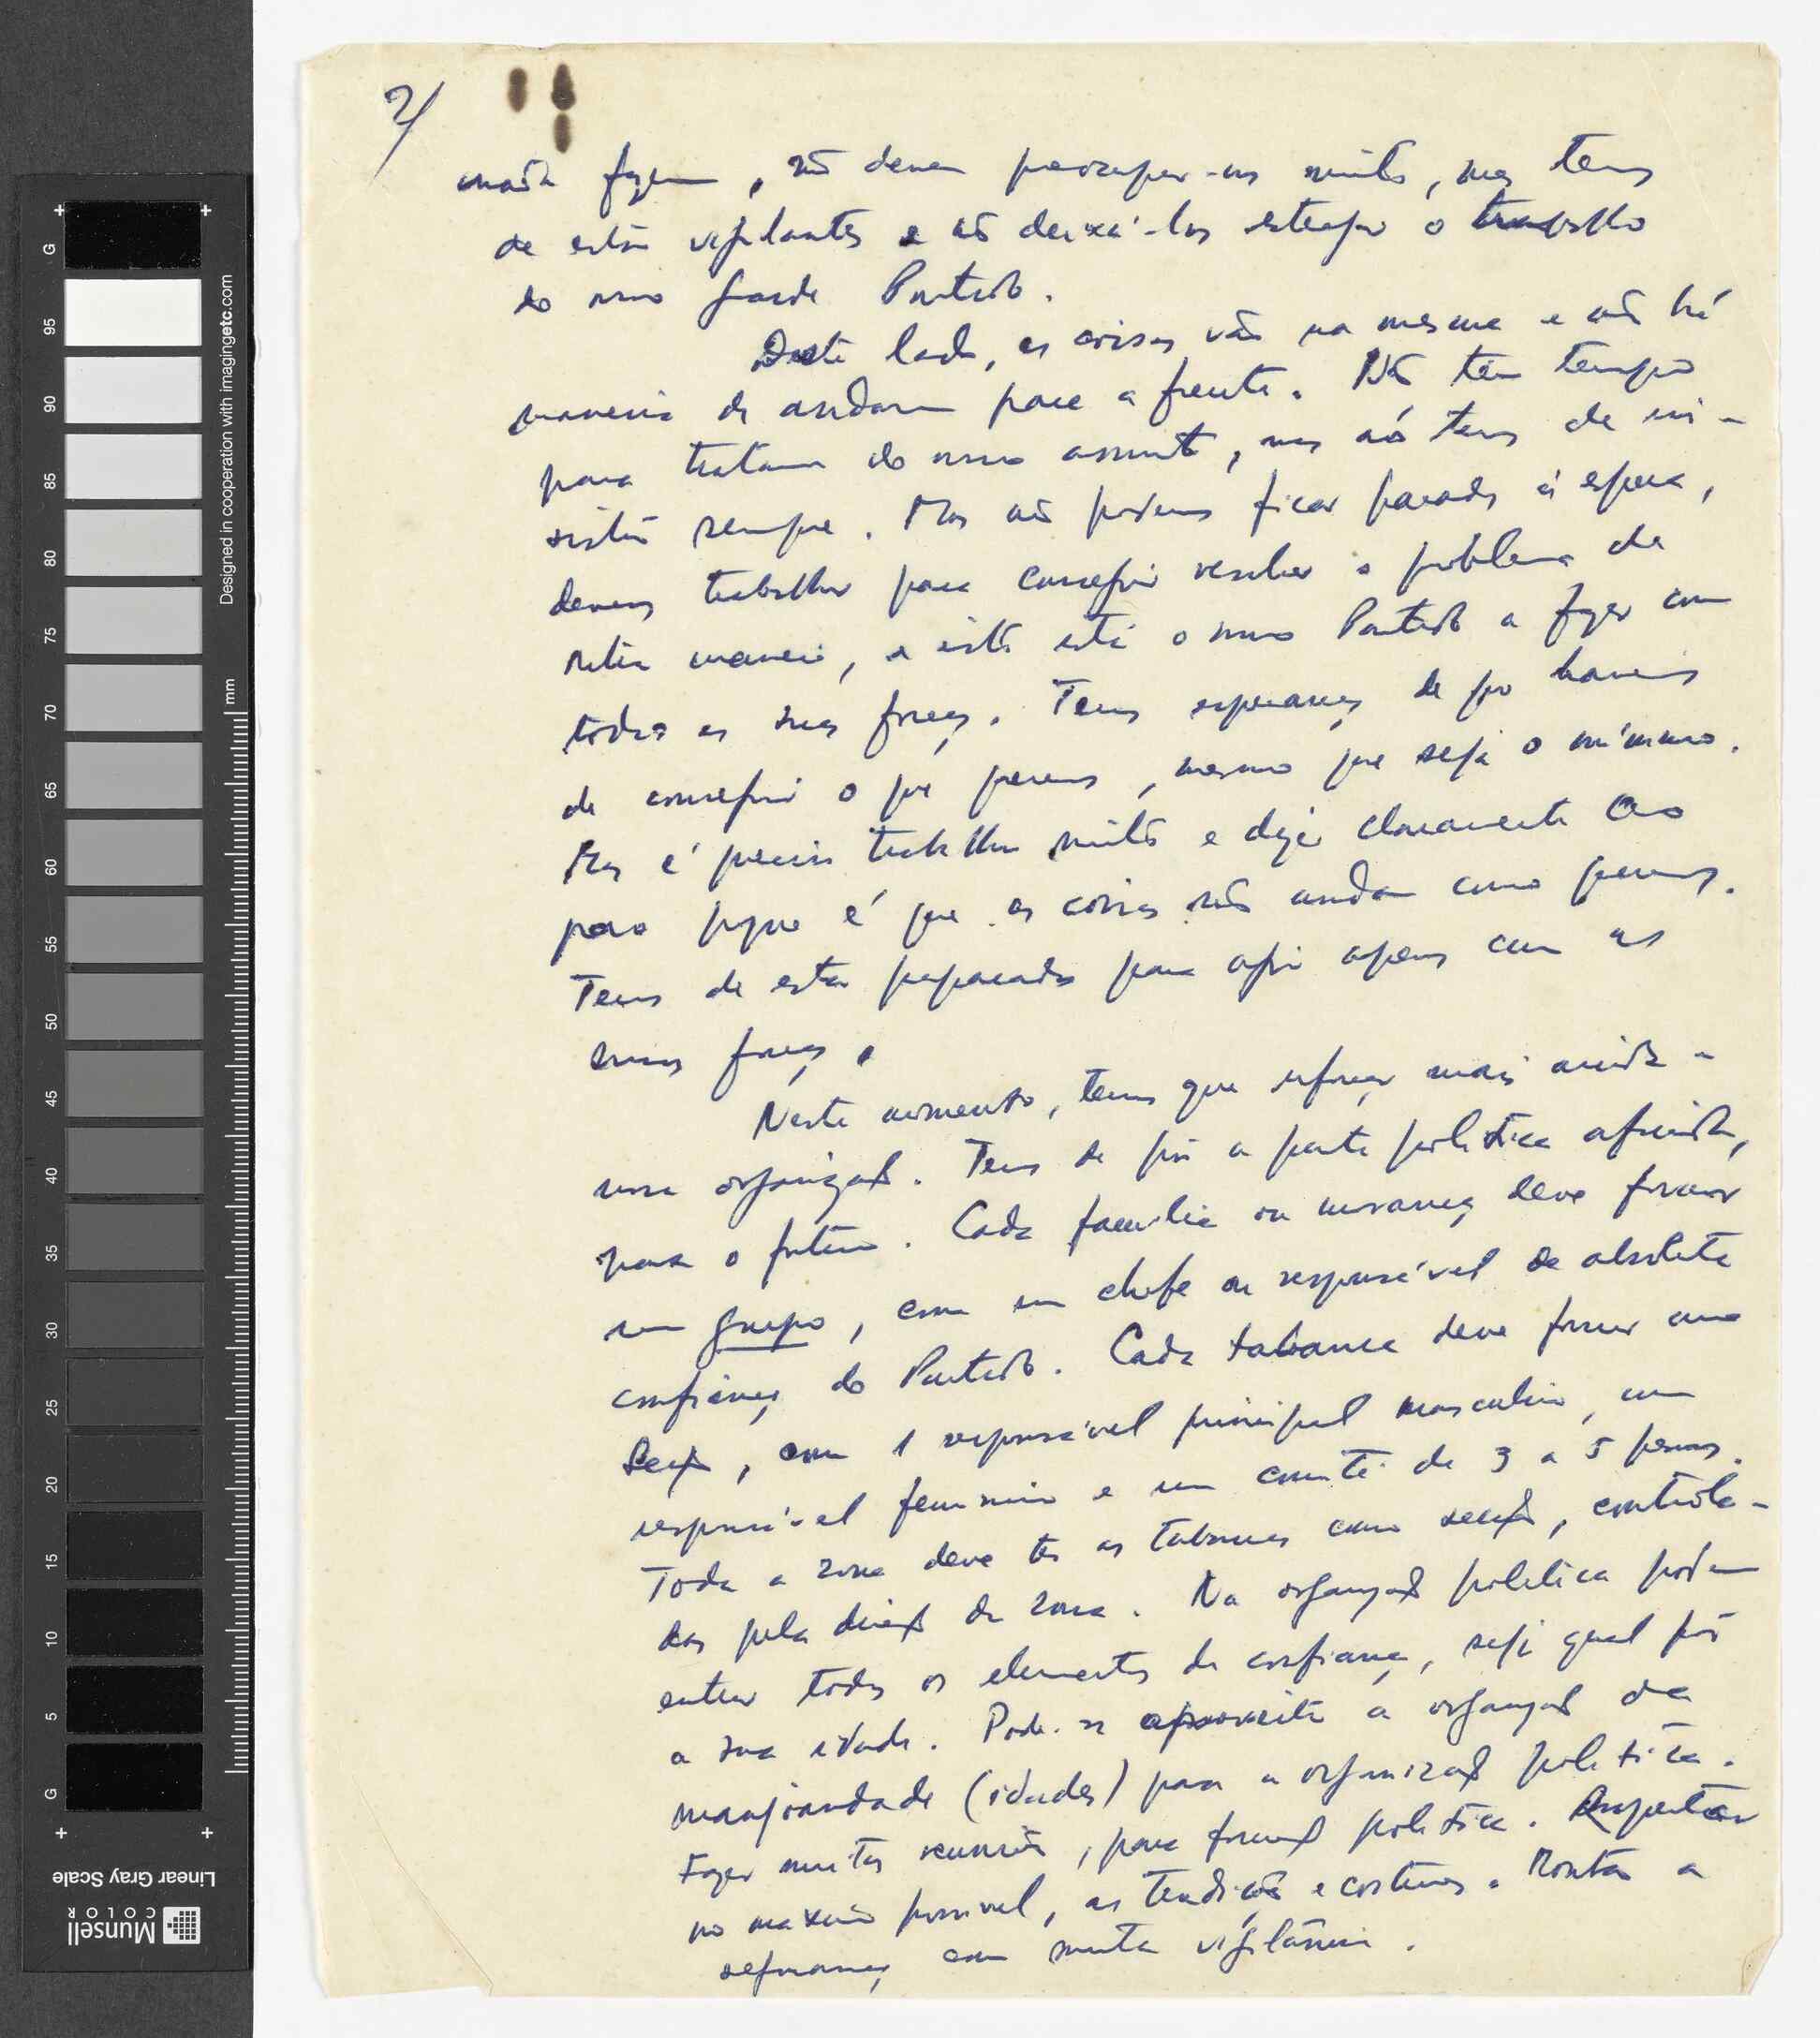 2/
nada fazem, não devem preocupar-nos muito, mas temos
de estar vigilantes e não deixá-los estragar o trabalho
do nosso grande Partido.
Deste lado, as coisas vão na mesma e não há
maneira de andarem para a frente. Não têm tempo
para tratarem do nosso assunto, mas nós temos de in-
sistir sempre. Mas não podemos ficar parados à espera,
devemos trabalhar para conseguir resolver o problema de
outra maneira, e isto está o nosso Partido a fazer com
todas as suas forças. Temos esperanças de que havemos
de conseguir o que queremos, mesmo que seja o mínimo.
Mas é preciso trabalhar muito e dizer claramente ao
povo porque é que as coisas não andam como queremos.
Temos de estar preparados para agir apenas com as
nossas forças.
Neste momento, temos que reforçar mais ainda a
nossa organização. Temos de pôr a parte política afinada,
para o futuro. Cada família ou morança deve formar
um grupo, com um chefe ou responsável de absoluta
confiança do Partido. Cada tabanca deve formar uma
Secção, com 1 responsável principal masculino, um
responsável feminino e um comité de 3 a 5 pessoas.
Toda a zona deve ter as tabancas como secção, controla-
das pela direcção da zona. Na organização política podem
entrar todos os elementos de confiança, seja qual fôr
a sua idade. Pode-se aproveitar a organização de
manjuandade (idades) para a organização política.
Fazer muitas reuniões, para formação política. Respeitar
no máximo possível, as tradições e costumes. Montar a
segurança com muita vigilância.
G
95
90
85
80
75
70
65
60
55
50
45
40
35
30
25
20
15
10
5
G
mm
Designed in cooperation with imagingetc.com
Linear Gray Scale
Munsell
COLOR